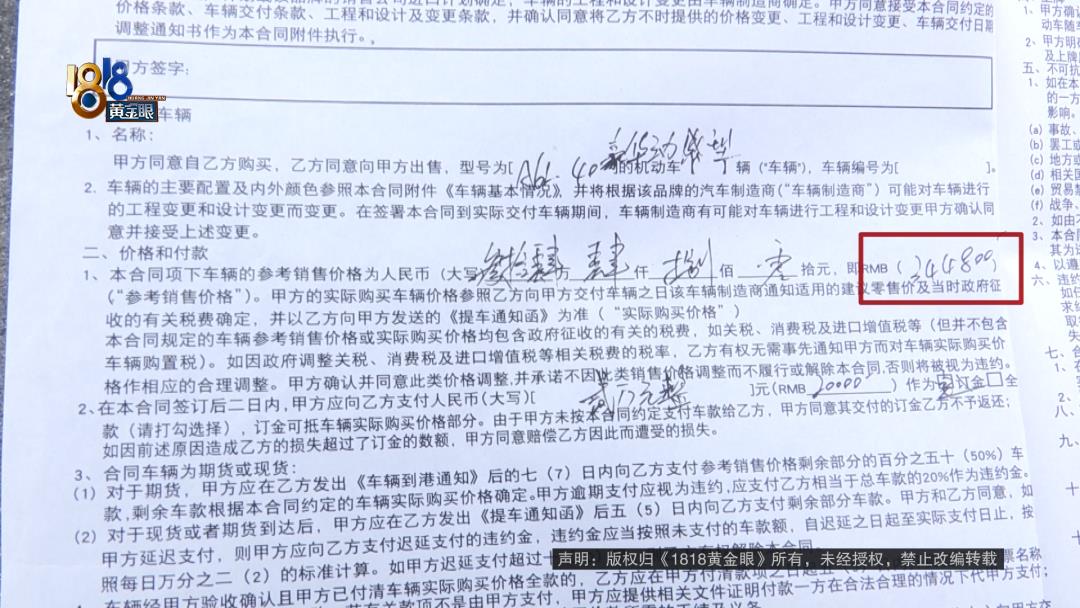 价格条款、车辆交付条款、工程和设计及变更条款，并确认同意将乙方不时提供的价格变更、工程和设计变更、车辆交付日期
调整通知书作为本合同附件执行。
甲方签字：
1818
黄金眼
车辆
1、名称：
甲方同意自乙方购买，乙方同意向甲方出售，型号为[ 的机动车 辆（"车辆"），车辆编号为[ ]。
2、车辆的主要配置及内外颜色参照本合同附件《车辆基本情况》，并将根据该品牌的汽车制造商（"车辆制造商"）可能对车辆进行
的工程变更和设计变更而变更。在签署本合同到实际交付车辆期间，车辆制造商有可能对车辆进行工程和设计变更甲方确认同
意并接受上述变更。
二、价格和付款
1、本合同项下车辆的参考销售价格为人民币（大写） 肆 万 肆 仟 捌 佰 零 拾元，即RMB（ 344800）
（"参考销售价格"）。甲方的实际购买车辆价格参照乙方向甲方交付车辆之日该车辆制造商通知适用的建议零售价及当时政府征
收的有关税费确定，并以乙方向甲方发送的《提车通知函》为准（"实际购买价格"）
本合同规定的车辆参考销售价格或实际购买价格均包含政府征收的有关的税费，如关税、消费税及进口增值税等（但并不包含
车辆购置税）。如因政府调整关税、消费税及进口增值税等相关税费的税率，乙方有权无需事先通知甲方而对车辆实际购买价
格作相应的合理调整。甲方确认并同意此类价格调整，并承诺不因此类销售价格调整而不履行或解除本合同，否则将被视为违约。
2、在本合同签订后二日内，甲方应向乙方支付人民币（大写）[ 贰万元整 ]元（RMB 20000 ）作为 订金□全
款（请打勾选择），订金可抵车辆实际购买价格部分。由于甲方未按本合同约定支付车款给乙方，甲方同意其交付的订金乙方不予返还；
如因前述原因造成乙方的损失超过了订金的数额，甲方同意赔偿乙方因此而遭受的损失。
3、合同车辆为期货或现货：
(1) 对于期货，甲方应在乙方发出《车辆到港通知》后的七（7）日内向乙方支付参考销售价格剩余部分的百分之五十（50%）车
款，剩余车款根据本合同约定的车辆实际购买价格确定。甲方逾期支付应视为违约，应支付乙方相当于总车款的20%作为违约金。
(2) 对于现货或者期货到达后，甲方应在乙方发出《提车通知函》后五（5）日内向乙方支付剩余部分车款。甲方和乙方同意，如
甲方延迟支付，则甲方应向乙方支付延迟支付的违约金，违约金应当按照未支付的车款额，自迟延之日起至实际支付日止，按
照每日万分之二（2）的标准计算。如甲方延迟支付超过十
声明：版权归《1818黄金眼》所有，未经授权，禁止改编转载
车辆经甲方验收确认且甲方已付清车辆实际购买价格全款的，乙方应在甲方付清款项之日起
1、甲方确
动车随车
2、甲方明
及上牌
五、不可抗
1、如在本
的一方
影响。
(a) 事故、
(b) 罢工或
(c) 地方或
(d) 相关国
(e) 贸易禁
(f) 战争、
2、如由不
3、本合同
其为达
4、以遵
六、违约